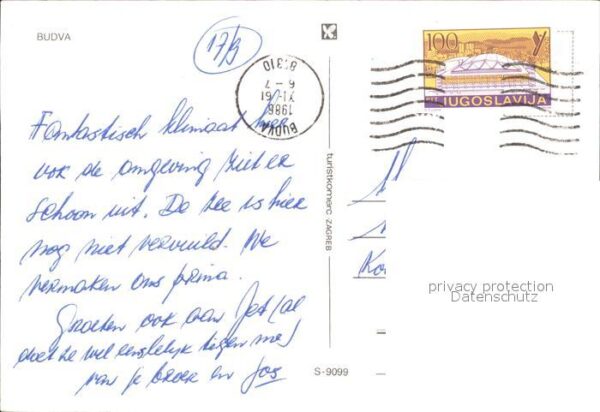 BUDVA
17/9
100
JUGOSLAVIJA
BUDVA
1986
6 - 7
81310
Fantastisch klimaat hier
ook de omgeving ziet er
schoon uit. De zee is hier
nog niet vervuild. We
vermaken ons prima.
Groeten ook aan Jet (al
doet ze wel eens lelijk tegen me)
van je broer en Jos
turistkomerc ZAGREB
S-9099
privacy protection
Datenschutz